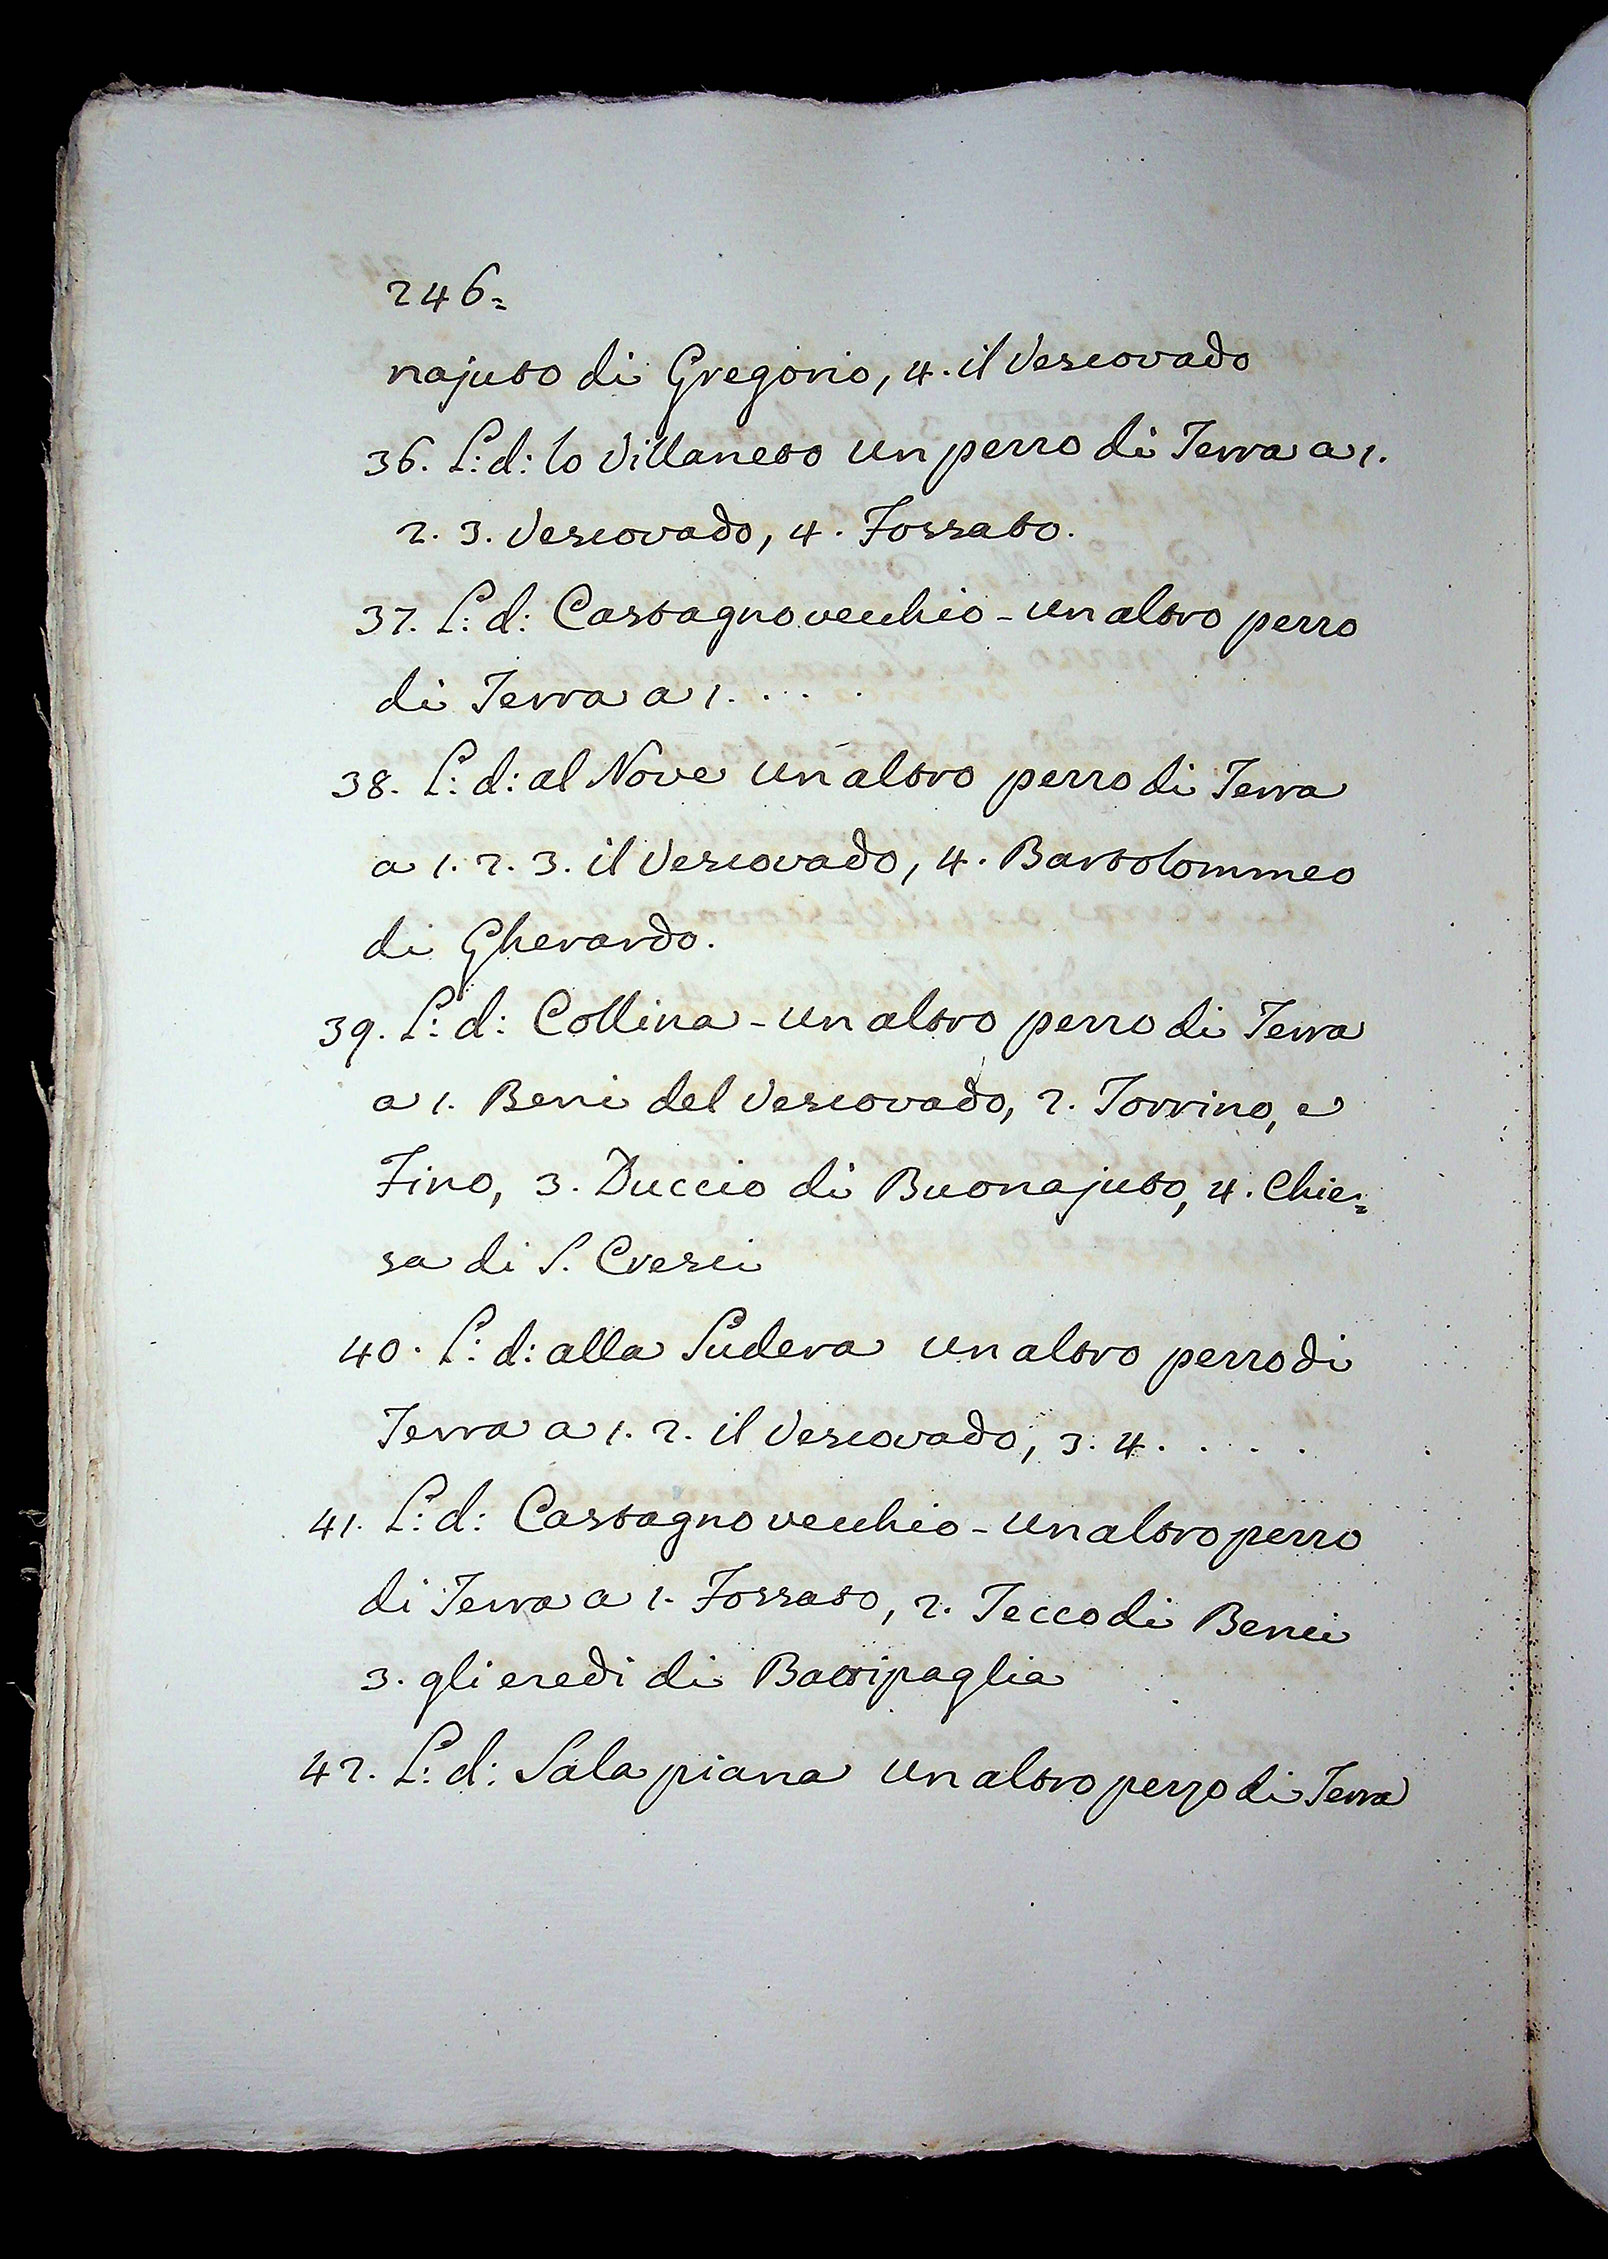 246=
najuto di Gregorio, 4. il Vescovado
36. L: d: lo Villaneto un pezzo di Terra a 1.
2. 3. Vescovado, 4. Fossato.
37. L: d: Castagnovecchio - un altro pezzo
di Terra a 1. . . . .
38. L: d: al Nove un altro pezzo di Terra
a 1. 2. 3. il Vescovado, 4. Bartolommeo
di Gherardo.
39. L: d: Collina - un altro pezzo di Terra
a 1. Beni del Vescovado, 2. Torrino, e
Fino, 3. Duccio di Buonajuto, 4. Chie=
sa di S. Cresci
40. L: d: alla Sudera un altro pezzo di
Terra a 1. 2. il Vescovado, 3. 4. . . . .
41. L: d: Castagno vecchio - un altro pezzo
di Terra a 1. Fossato, 2. Tecco di Benci
3. gli eredi di Battipaglia
42. L: d: Sala piana un altro pezzo di Terra